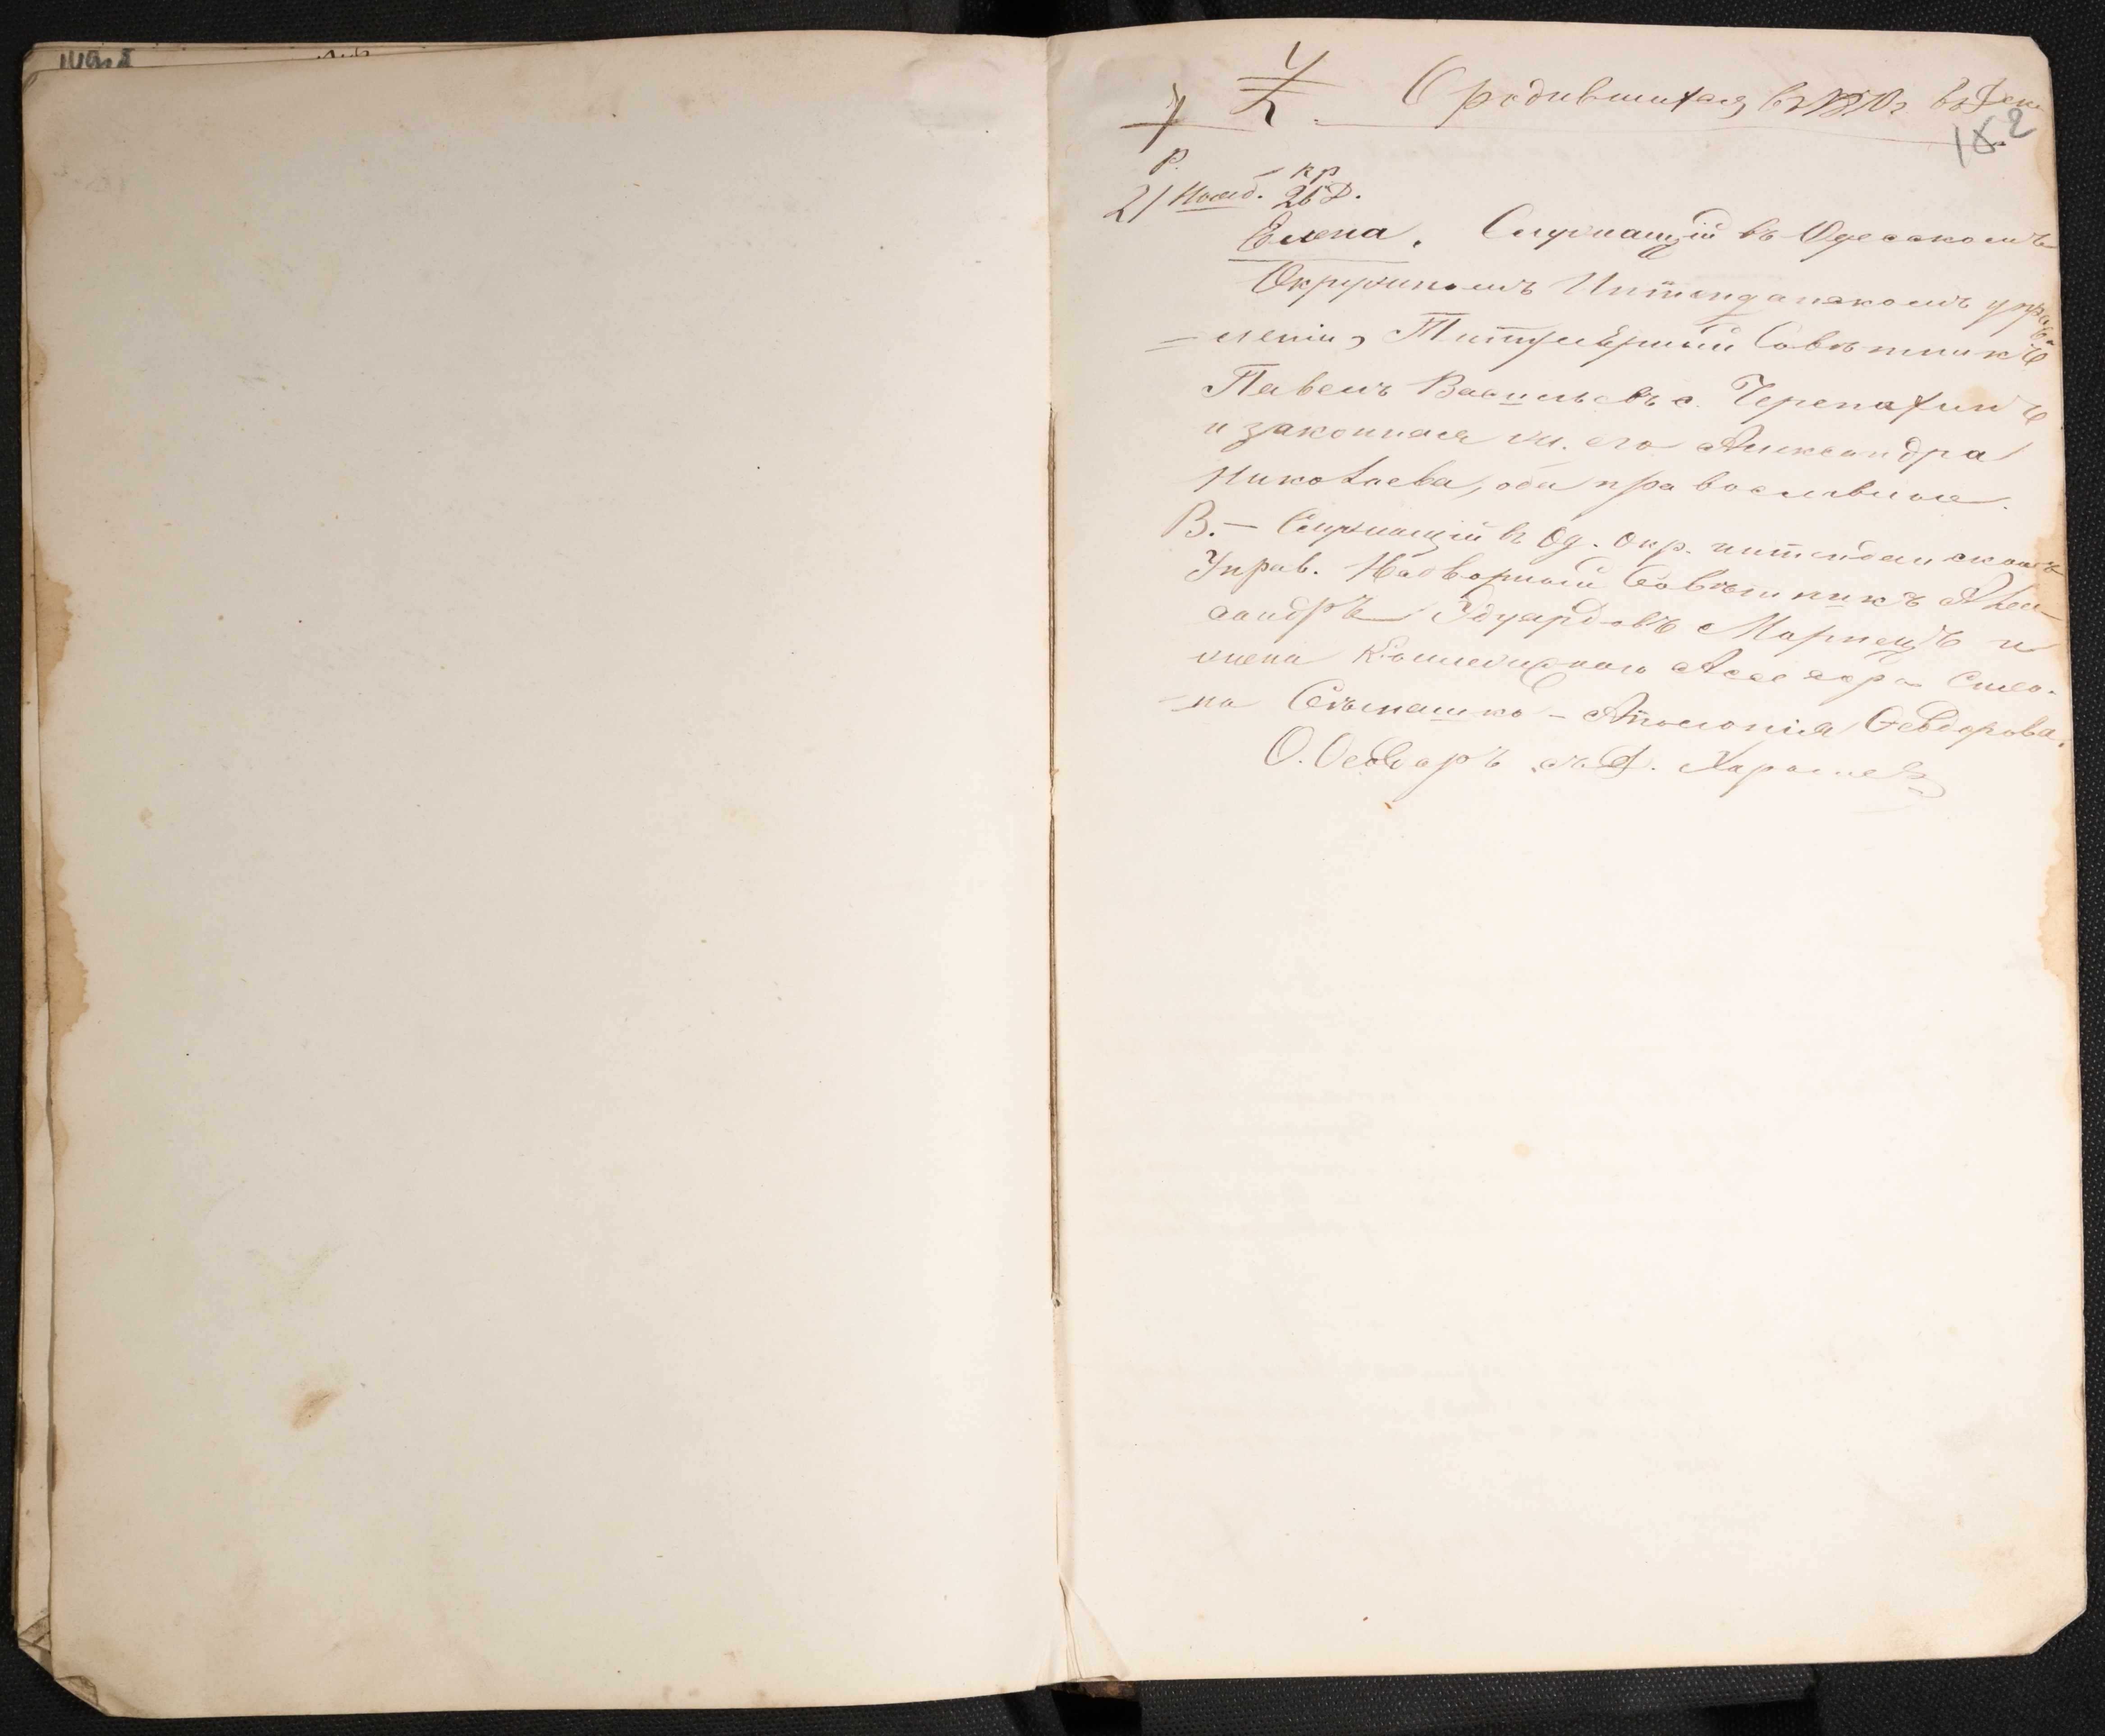 О родившихся въ 1870 г. въ Дек
182
Р. кр
21 Нояб. 26 Д.
Елена. Служащій въ Одесскомъ
Окружномъ Интендантскомъ управ
=леніи, Титулярный Совѣтникъ
Павелъ Васильевъ с. Черепахинъ
и законная ж. его Александра
Николаева, оба православные.
В. – Служащій в Од. окр. интендантскомъ
Управ. Надворный Совѣтникъ Алек
сандръ Эдуардовъ Марнецъ и
жена Коллежскаго Ассесора Степа-
-на Сѣмашко – Аполонія Ѳеодорова.
О. Ѳеодоръ съ